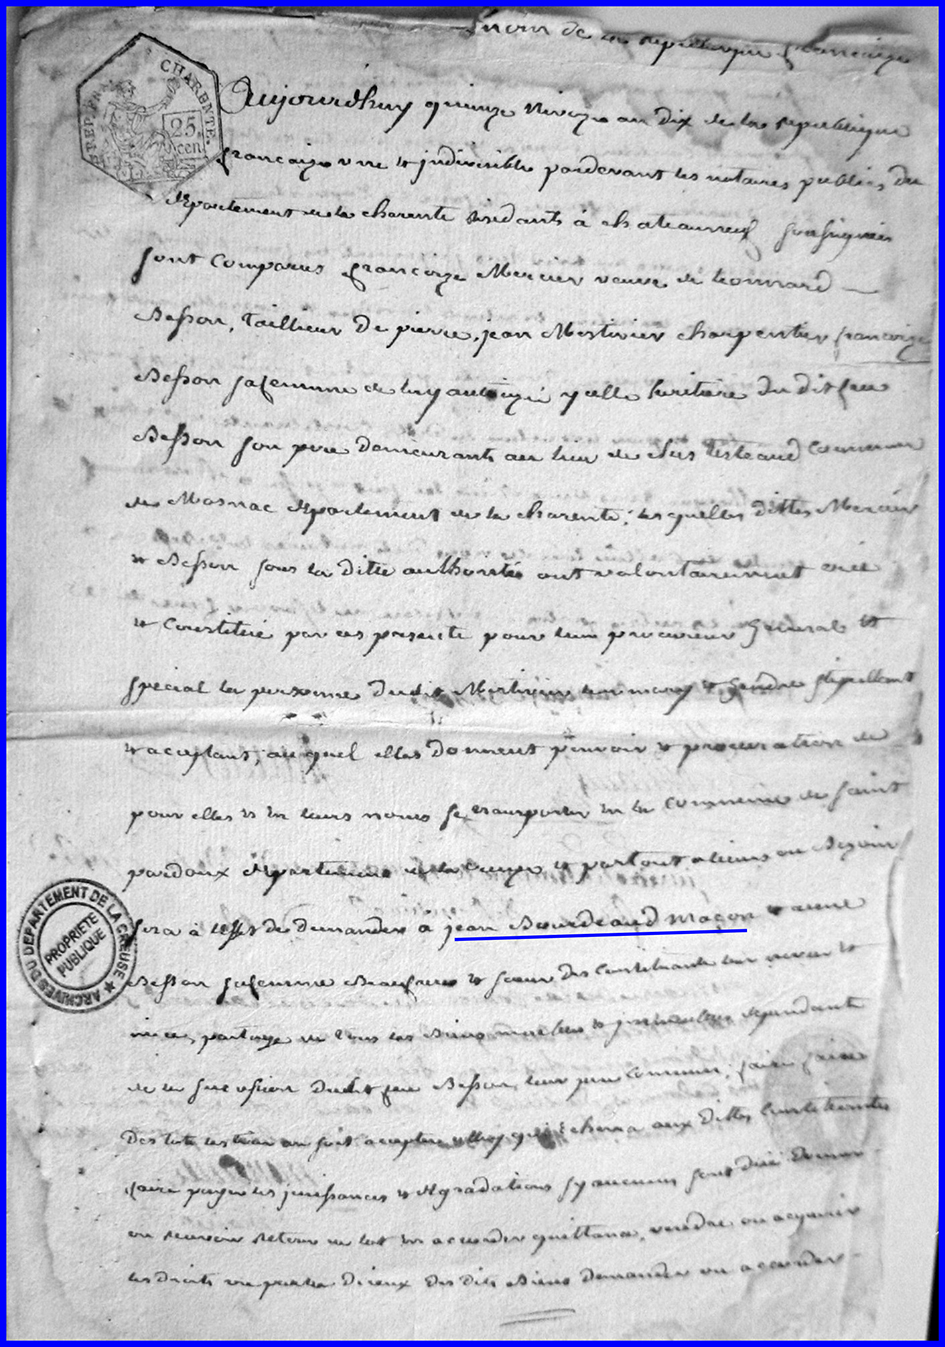 nom de la republique francaize
REP. FRA
CHARENTE.
25.
cen.
Aujourdhuy quinze nivoze an dix de la republique
francaize une et indivisible pardevant les notaires publics du
departement de la charente residants à chateauneuf soussignés
sont comparus francoize Mercier veuve de leonnard
Besson, tailleur de pierre, jean Mestivier charpentier francoize
Besson sa femme de luy authorizé y celle heritiere du dit feu
Besson son pere demeurants au lieu de chés commune
de Mosnac departement de la charente, lesquelles dittes Mercier
et Besson sous la ditte authorité ont volontairement créé
et Constitué par ces presente pour leur procureur general et
special la personne dudit mary et gendre stipullant
et acceptant, auquel elles donnent pouvoir et procuration de
pour elles et en leurs noms se transporter en la commune de saint
pardoux departement de la creuze et partout ailieurs ou Bezoin
sera à l'effet de demander a jean Bourdeaud maçon et anne
Besson sa femme Beaufrere et soeur des Constituante leur neveu et
niece, partage de tous les Biens meubles et immeubles dependants
de la succession dudit feu Besson, leur pere commun, faire faire
Des lots les tirer au sort accepter celluy qui echerra aux dittes Constituantes
faire payer les jouissances et degradations sy aucunes sont due donner
ou recevoir retour de lot en accorder quittance, vendre ou acquerir
les droits des dits Biens demander ou accorder
ARCHIVES DU DEPARTEMENT DE LA CREUSE
PROPRIETE
PUBLIQUE